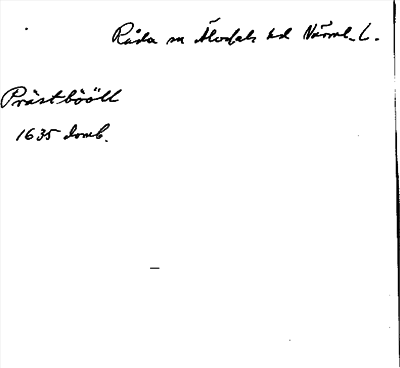 Råda sn Älvdals hd Värml. L.
Prästbööll
1635 domb.